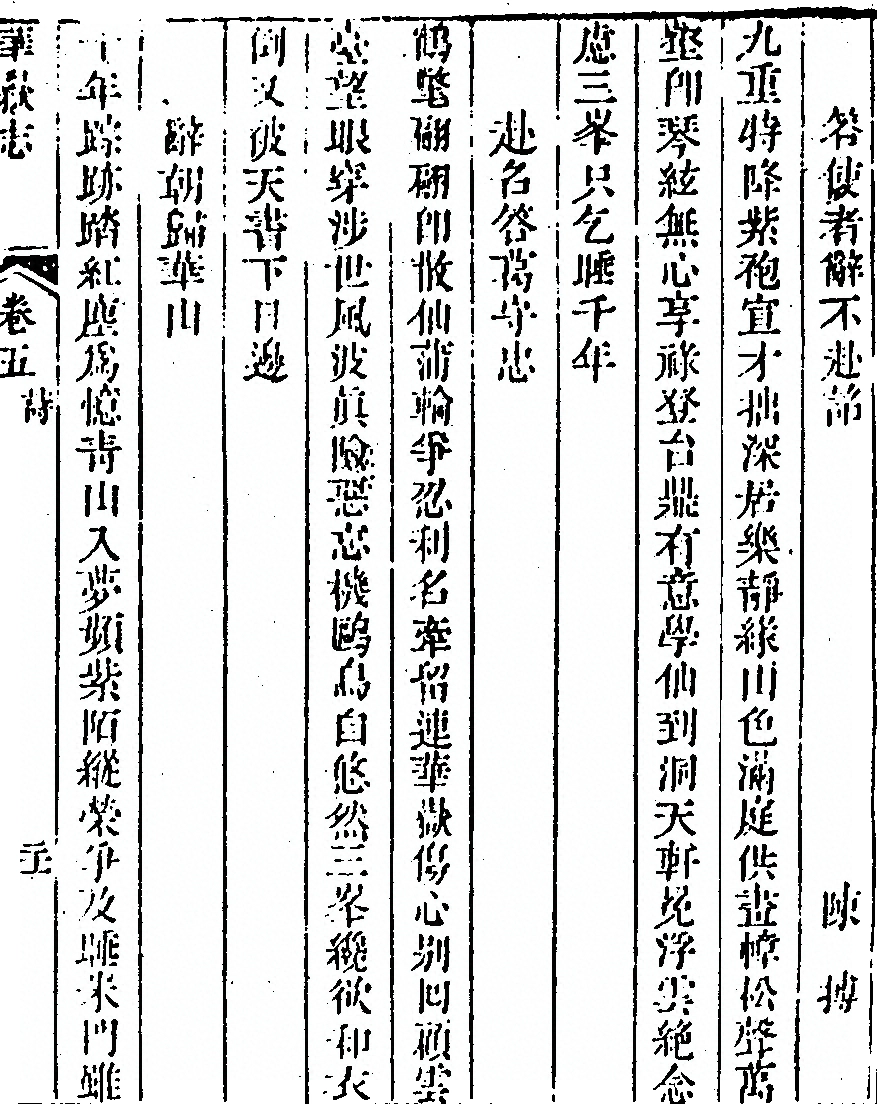 答使者辭不赴詔 陳摶
九重特降紫袍宣才拙深居樂靜緣山色滿庭供畫幛松聲萬
壑即琴絃無心享祿登台鼎有意學仙到洞天軒冕浮雲絕念
慮三峯只乞睡千年
赴名答葛守忠
鶴氅翩翩即散仙蒲輪爭忍利名牽留連華嶽傷心別回顧雲
臺望眼穿涉世風波真險惡忘機鷗鳥自悠然三峯纔欲和衣
倒又被天書下日邊
辭朝歸華山
十年踪跡踏紅塵爲憶青山入夢頻紫陌縱榮爭及睡朱門雖
華嶽志 卷五 詩